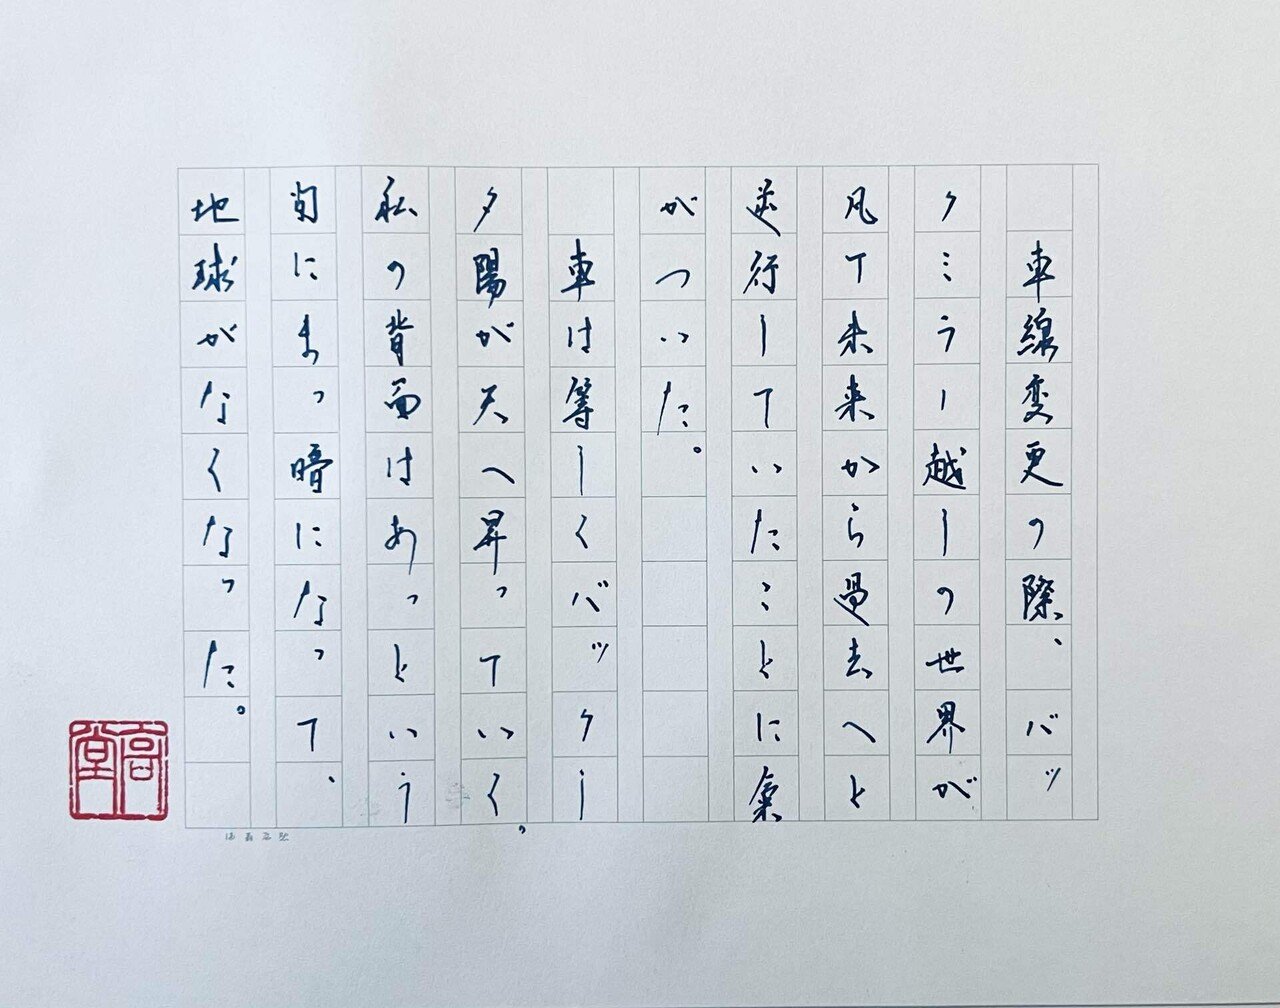 車線変更の際、バッ
クミラー越しの世界が
凡て未来から過去へと
逆行していたことに氣
がついた。
　車は等しくバックし
夕陽が天へ昇っていく。
私の背面はあっという
間にまっ暗になって、
地球がなくなった。